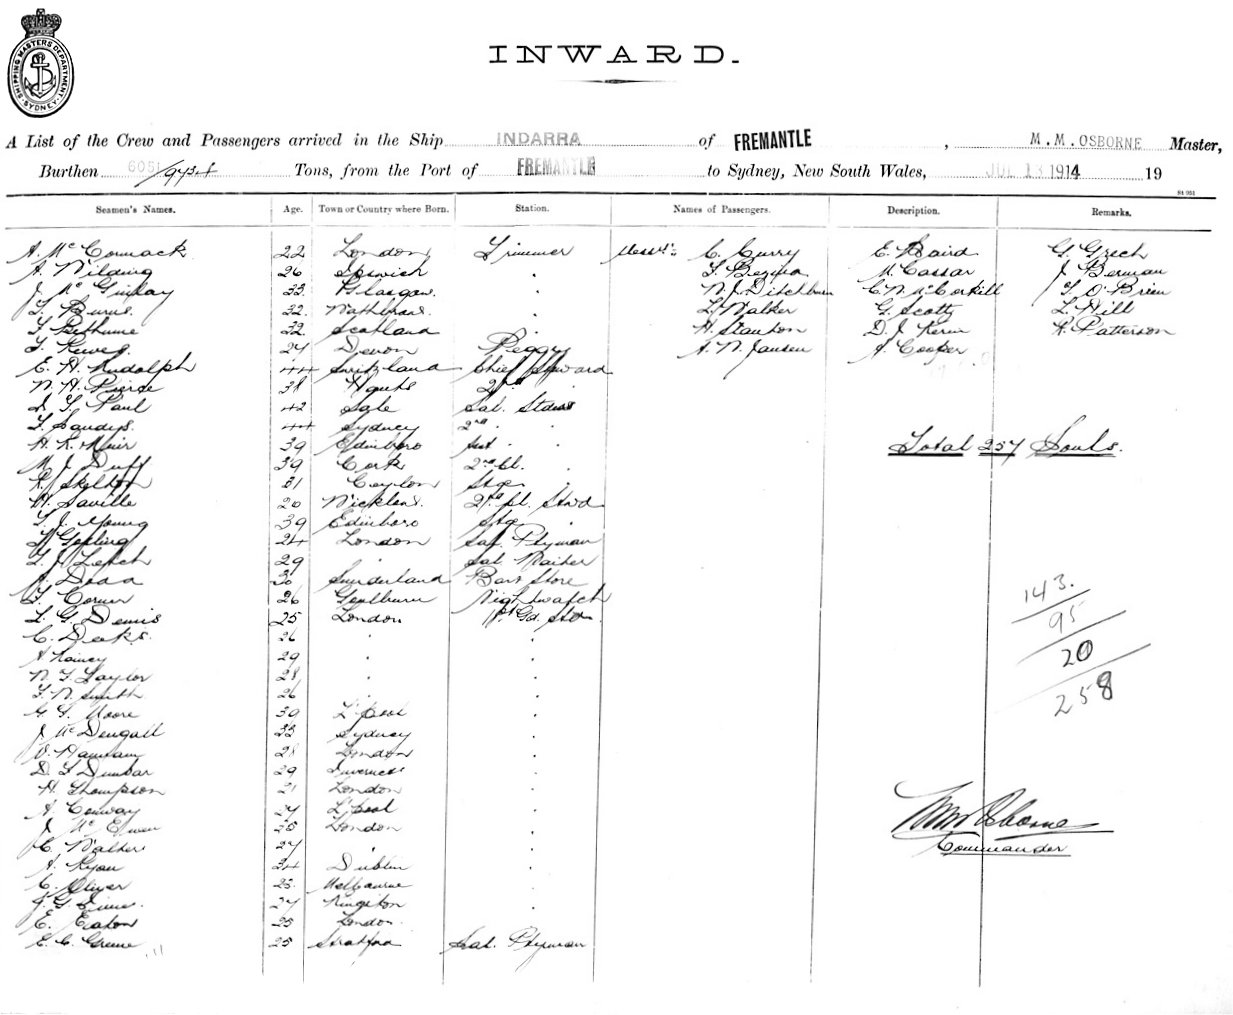 SHIPPING MASTERS DEPARTMENT. SYDNEY.
INWARD.
A List of the Crew and Passengers arrived in the Ship INDARRA of FREMANTLE, M. M. OSBORNE Master,
Burthen 6051 Tons, from the Port of FREMANTLE to Sydney, New South Wales, JUL 13 1914 19
Seamen's Names. Age. Town or Country where Born. Station. Names of Passengers. Description. Remarks.
A. McCormack 22 London Trimmer Messrs. C. Curry E. Baird G. Grech
A. Wilding 26 Ipswich " M. Cassar J. Berman
23 Glasgow " N. J. Ditchburn C. N. McCorkill T. O'Brien
T. Burns 32 " L. Walker G. Scott L. Hill
T. Bethune 32 Scotland " H. Stanton D. J. Kerin K. Patterson
24 Devon Peggy A. N. Jansen A. Cooper
E. H. Rudolph 44 Switzland Chief Steward
N. H. Pierce 38 Hants 2nd "
Paul 42 Sale Sal. Stwds
T. Sandys 44 Sydney 2nd "
H. R. Muir 39 Edinboro
M. J. Duff 39 Cork 2nd Cl. "
Total 257 Souls.
R. Skelton 31 Ceylon Stge "
H. Saville 20 2nd Cl. Stwd
T. J. Young 39 Edinboro Stge "
Gosling 24 London Sal. Ptyman
T. J. Leach 29 " Sal. Waiter
30 Sunderland Bar Store
T. Corner 26 Goulburn Nightwatch
L. G. Dennis 25 London
C. Deeks 26 " "
143.
95
A. Rainey 29 " "
20
N. T. Taylor 28 " "
T. N. Smith 26 " "
258
G. T. Moore 30 L'pool "
J. McDougall 33 Sydney "
Hannam 28 London "
D. T. Dunbar 29 Inverness "
H. Thompson 21 London "
A. Conway 27 L'pool "
J. McEwen 25 London "
C. Walker 27 " "
A. Ryan 34 Dublin "
M M Osborne
Commander
C. Oliver 23 Melbourne "
27 Kingston "
E. Eaton 25 London "
E. C. Greene 25 Stratford Sal. Ptyman